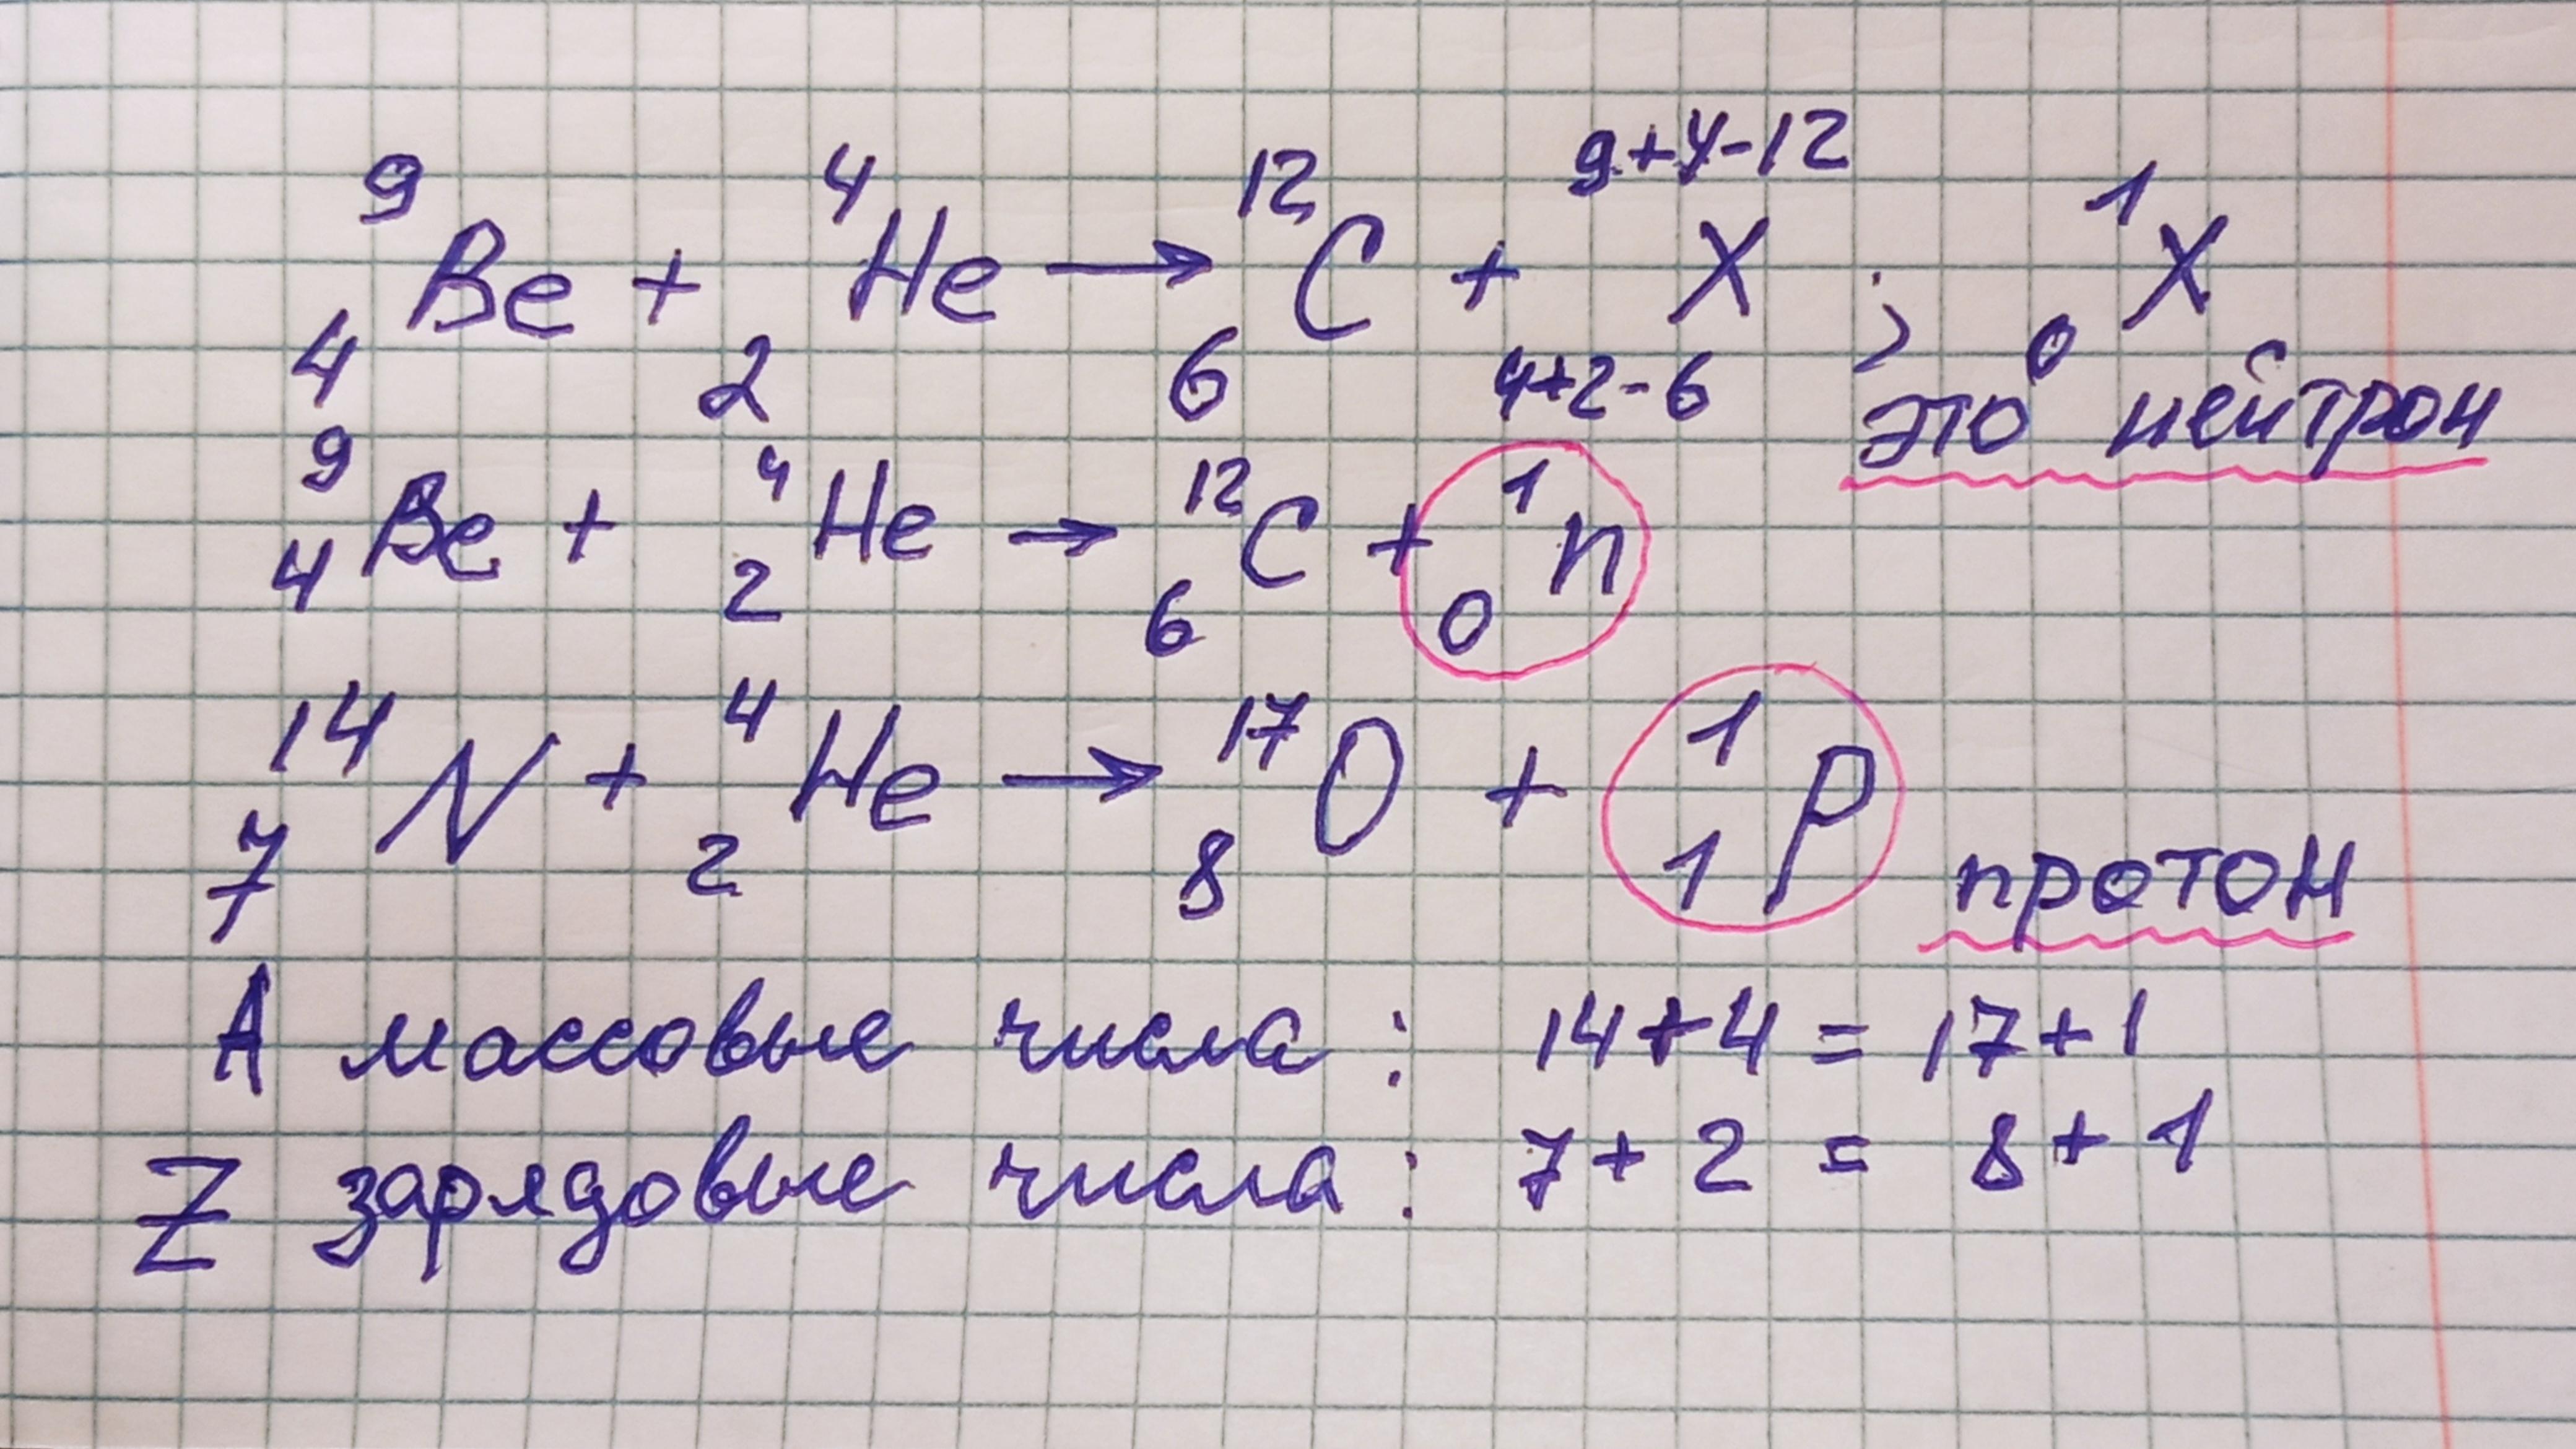 ⁹₄Be + ⁴₂He → ¹²₆C + ⁹⁺⁴⁻¹²₄₊₂₋₆X ; ¹₀X
это нейтрон
⁹₄Be + ⁴₂He → ¹²₆C + ¹₀n
¹⁴₇N + ⁴₂He → ¹⁷₈O + ¹₁p протон
A массовые числа: 14+4 = 17+1
Z зарядовые числа: 7+2 = 8+1